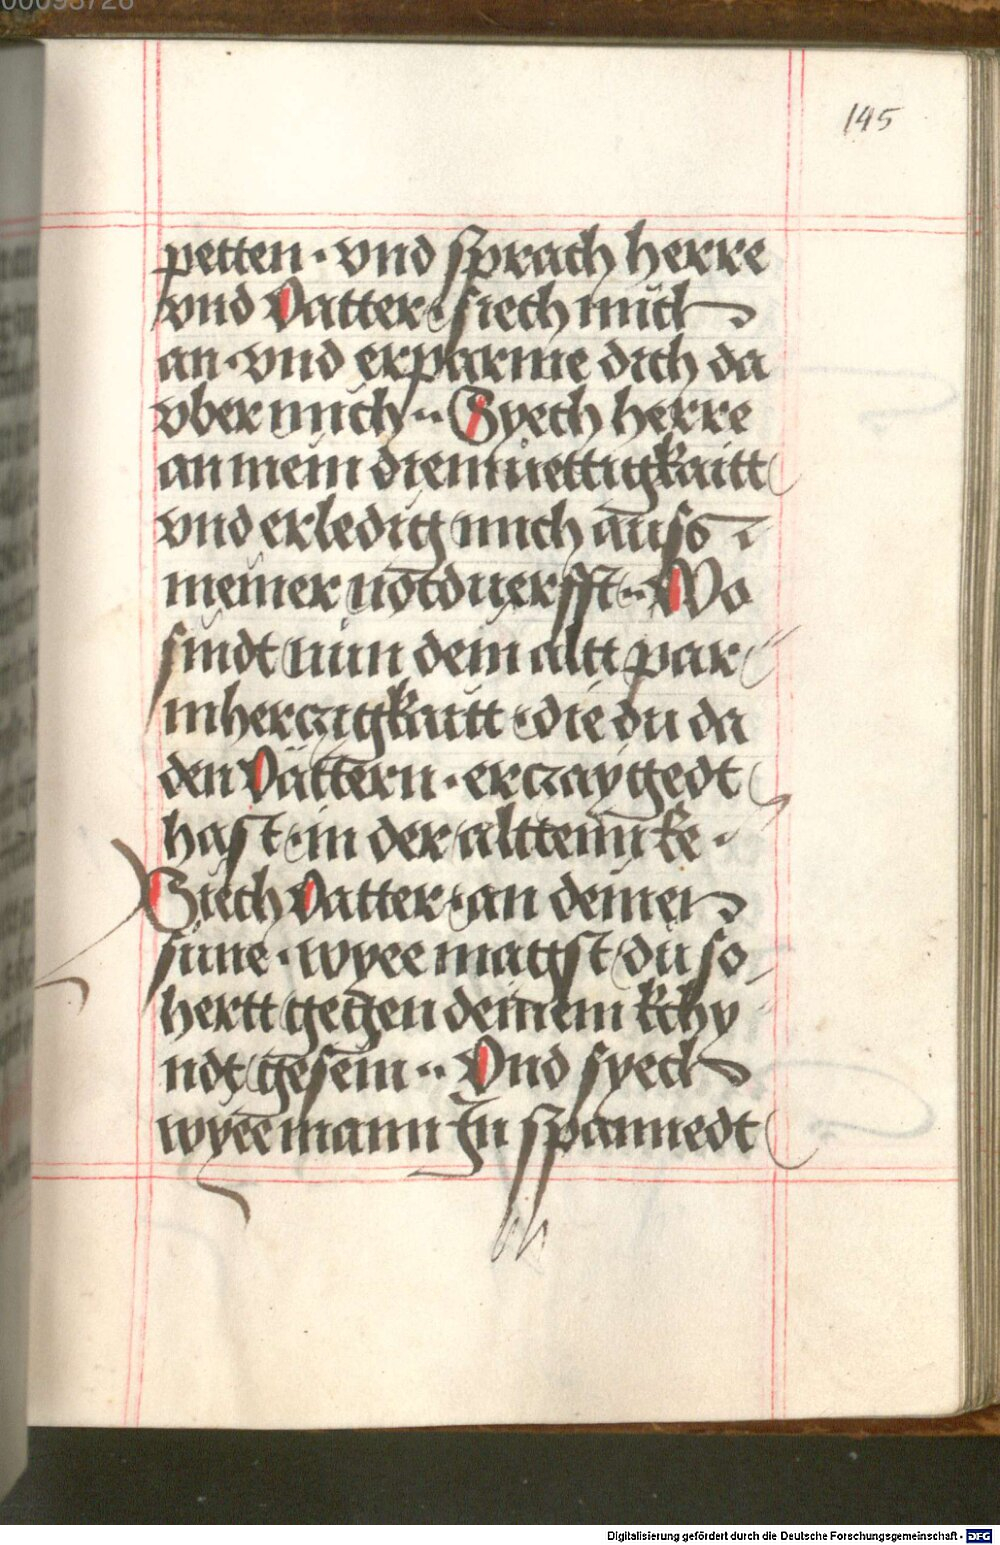 00093726
145
petten · vnd sprach herre
vnd Vatter · siech mich
an · vnd erparme dich da
vber mich ·· Syech herre
an mein diemüettigkaitt
vnd erledig mich auss
meiner notduerfft ·· Wo
sindt nun dein altt par
mherczigkaitt · die du da
den Vättern · erczaygedt
hast · in der altten ee ·
Siech Vatter · an deinen
sune · wyee magst du so
hertt gegen deinem kchy
ndt gesein ·· Vnd syech
wyee mann In spannedt
Digitalisierung gefördert durch die Deutsche Forschungsgemeinschaft - DFG